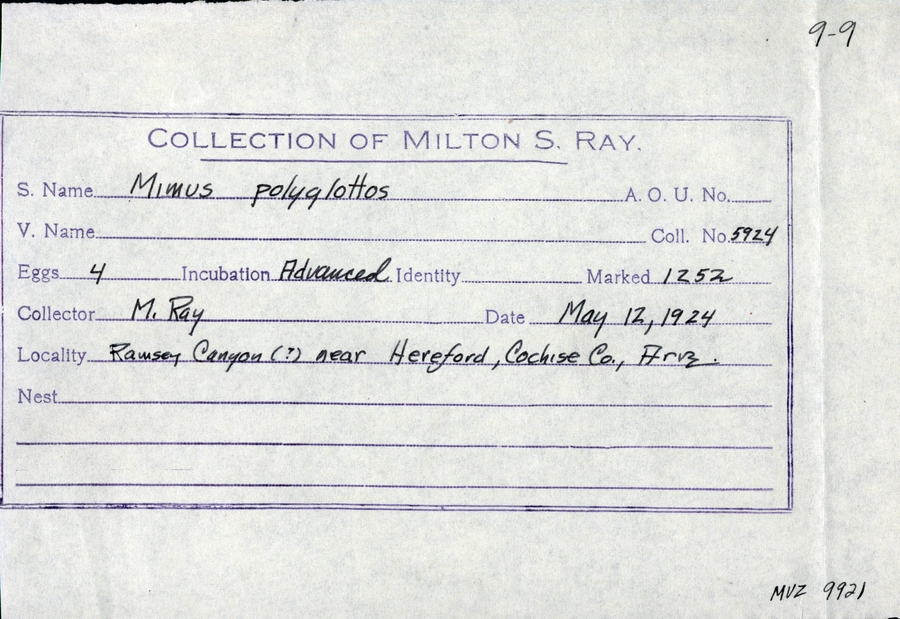 9-9
COLLECTION OF MILTON S. RAY.
S. Name Mimus polyglottos A. O. U. No.
V. Name Coll. No. 5924
Eggs 4 Incubation Advanced Identity Marked 1252
Collector M. Ray Date May 12, 1924
Locality Ramsey Canyon (?) near Hereford, Cochise Co., Ariz.
Nest
MVZ 9921